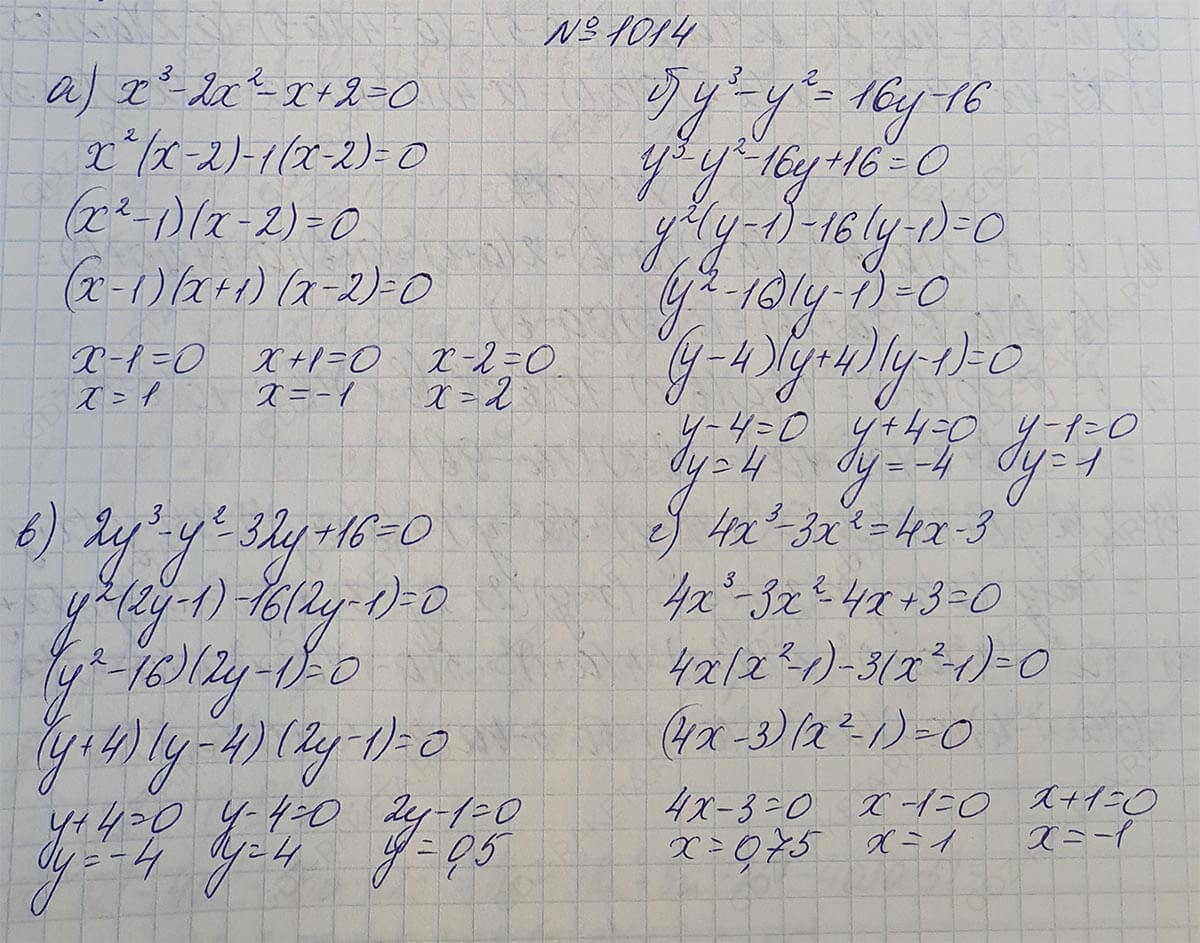 № 1014
а) x³-2x²-x+2=0
x²(x-2)-1(x-2)=0
(x²-1)(x-2)=0
(x-1)(x+1)(x-2)=0
x-1=0 x+1=0 x-2=0
x=1 x=-1 x=2
б) y³-y²=16y-16
y³-y²-16y+16=0
y²(y-1)-16(y-1)=0
(y²-16)(y-1)=0
(y-4)(y+4)(y-1)=0
y-4=0 y+4=0 y-1=0
y=4 y=-4 y=1
в) 2y³-y²-32y+16=0
y²(2y-1)-16(2y-1)=0
(y²-16)(2y-1)=0
(y+4)(y-4)(2y-1)=0
y+4=0 y-4=0 2y-1=0
y=-4 y=4 y=0,5
г) 4x³-3x²=4x-3
4x³-3x²-4x+3=0
4x(x²-1)-3(x²-1)=0
(4x-3)(x²-1)=0
4x-3=0 x-1=0 x+1=0
x=0,75 x=1 x=-1